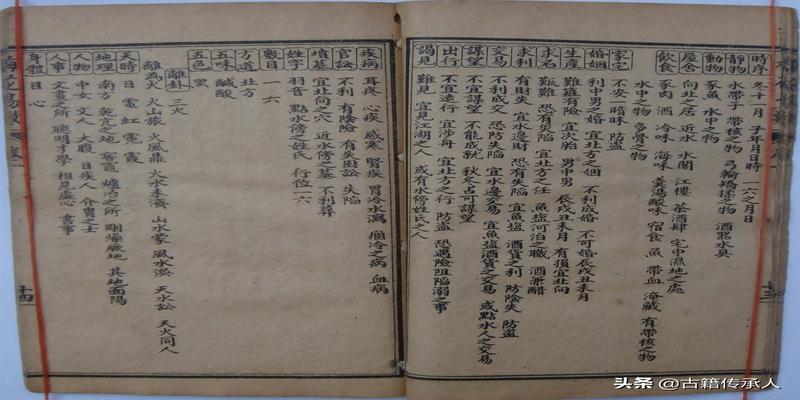 時序 冬十一月 子年月日時 一六之月日
靜物 水帶子 帶核之物 弓輪矯揉之物 酒器水具
動物 豕魚 水中之物
屋舍 向北之居 近水 水閣 江樓 茶酒肆 宅中濕地之處
飲食 豕肉 酒 冷味 海味 羹湯酸味 宿食 魚 帶血 淹藏 有帶核之物
水中之物 多骨之物
家宅 不安 暗昧 防盜
婚姻 利中男之婚 宜北方之姻 不利成婚 不可婚辰戌丑未月
生產 難產有險 宜次胎 男中男 辰戌丑未月 有損宜北向
求名 艱難 恐有災陷 宜北方之任 魚鹽河泊之職 酒兼醋
求利 有財失 宜水邊財 恐有失陷 宜魚鹽 酒貨之利 防陰失 防盜
交易 不利成交 恐防失陷 宜水邊交易 宜魚鹽酒貨之交易 或點水人之交易
謀望 不宜謀望 不能成就 秋冬占可謀望
出行 不宜遠行 宜涉舟 宜北方之行 防盜 恐遇險阻陷溺之事
謁見 難見 宜見江湖之人 或有水傍姓氏之人
疾病 耳疼 心疾 感寒 腎疾 胃冷水瀉 痼冷之病 血病
官訟 不利 有陰險 有失困訟 失陷
墳墓 宜北向之穴 近水傍之墓 不利葬
姓字 羽音 點水傍之姓氏 行位一六
數目 一 六
方道 北方
五味 鹹酸
五色 黑
離卦 三 火
離為火 火山旅 火風鼎 火水未濟 山水蒙 風水渙 天水訟 天火同人
天時 日 電 虹 霓 霞
地理 南方 乾亢之地 窰竈 爐冶之所 剛燥厥地 其地面陽
人物 中女 文人 大腹 目疾人 介冑之士
人事 文書之所 聰明才學 相見虛心 書事
身體 目 心
十四
十三
头条 @古籍传承人